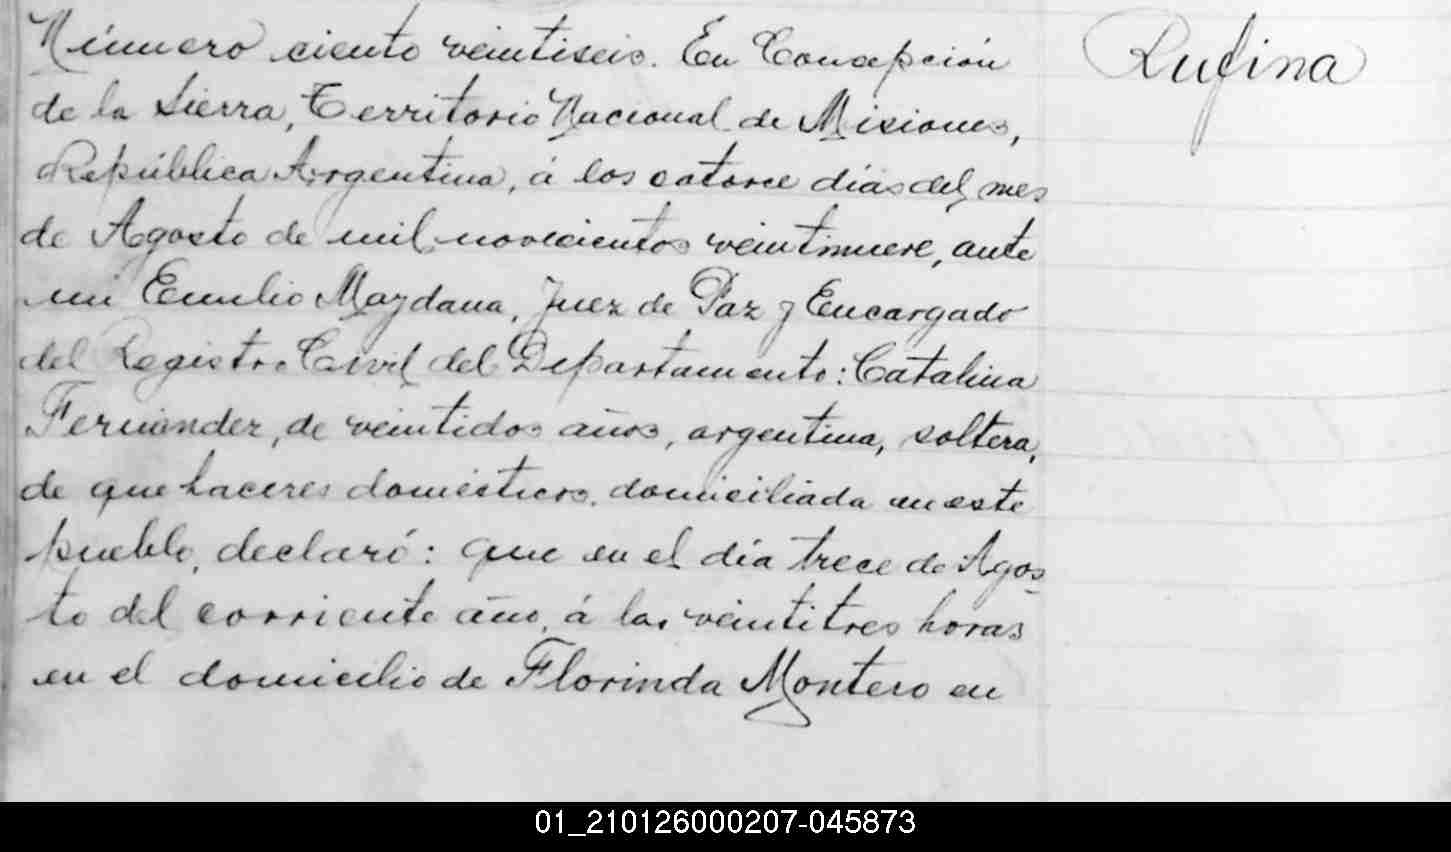 Número ciento veintiseis. En Concepción
Rufina
de la Sierra, Territorio Nacional de Misiones,
República Argentina, á los catorce días del mes
de Agosto de mil novecientos veintinueve, ante
mi Emilio Maydana, Juez de Paz y Encargado
del Registro Civil del Departamento: Catalina
Fernández, de veintidos años, argentina, soltera,
de que haceres domésticos, domiciliada en este
pueblo, declaró: que en el día trece de Agos-
to del corriente año, á las veintitres horas
en el domicilio de Florinda Montero en
01_210126000207-045873